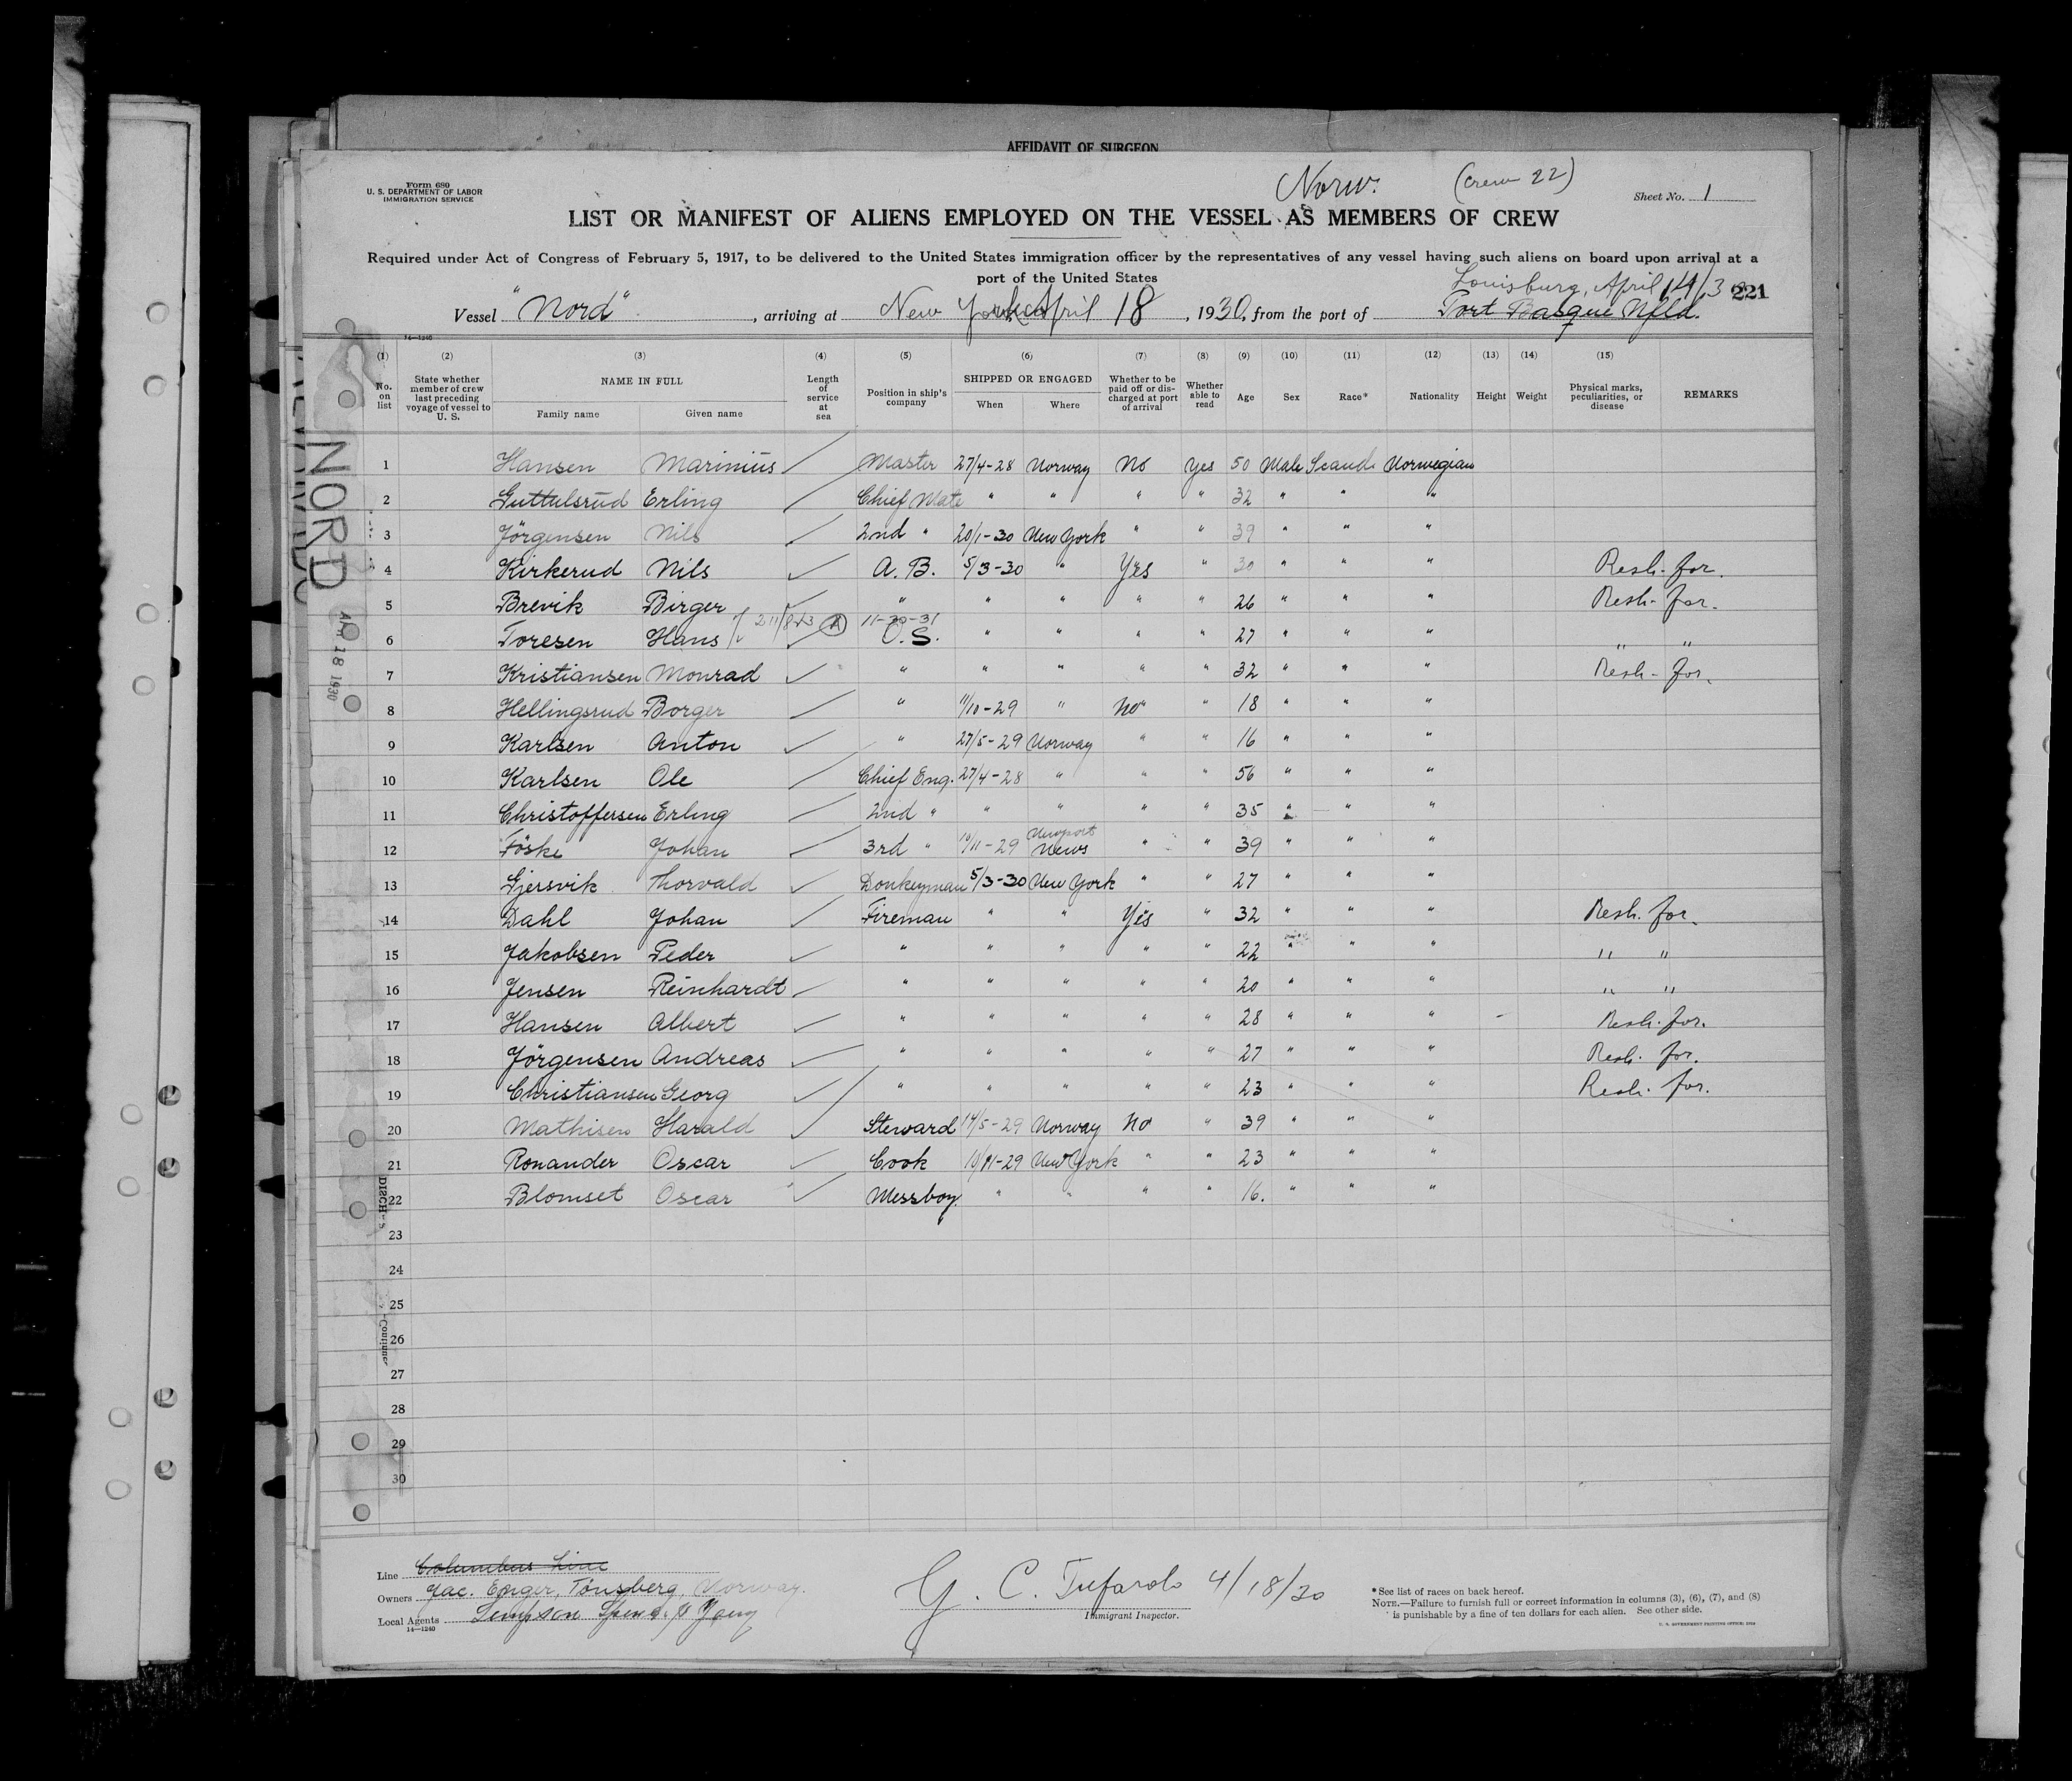 AFFIDAVIT OF SURGEON
Form 680
U. S. DEPARTMENT OF LABOR
IMMIGRATION SERVICE
Norw. (Crew 22)
Sheet No. 1
LIST OR MANIFEST OF ALIENS EMPLOYED ON THE VESSEL AS MEMBERS OF CREW
Required under Act of Congress of February 5, 1917, to be delivered to the United States immigration officer by the representatives of any vessel having such aliens on board upon arrival at a
port of the United States
Louisburg, April 14/30
221
Vessel "Nord", arriving at New York April 18, 1930, from the port of Port Basque Nfld.
14—1240
(1) (2) (3) (4) (5) (6) (7) (8) (9) (10) (11) (12) (13) (14) (15)
No. on list
State whether member of crew last preceding voyage of vessel to U. S.
NAME IN FULL
Family name Given name
Length of service at sea
Position in ship's company
SHIPPED OR ENGAGED
When Where
Whether to be paid off or discharged at port of arrival
Whether able to read
Age Sex Race* Nationality Height Weight
Physical marks, peculiarities, or disease
REMARKS
1 Hansen Marinius Master 27/4-28 Norway No Yes 50 Male Scand. Norwegian
2 Guttulsrud Erling Chief Mate " " " " 32 " " "
3 Jörgensen Nils 2nd " 20/1-30 New York " " 39 " " "
4 Kirkerud Nils A. B. 5/3-30 " Yes " 30 " " " Resh. for.
5 Brevik Birger " " " " " 26 " " " Resh. for.
11-30-31
6 Toresen Hans (A) O. S. " " " " 27 " " " " "
7 Kristiansen Monrad " " " " " 32 " " " Resh. for.
8 Hellingsrud Borger " 11/10-29 " No " 18 " " "
9 Karlsen Anton " 27/5-29 Norway " " 16 " " "
10 Karlsen Ole Chief Eng. 27/4-28 " " " 56 " " "
11 Christoffersen Erling 2nd " " " " " 35 " " "
12 Föske Johan 3rd " 10/11-29 Newport News " " 39 " " "
13 Gjersvik Thorvald Donkeyman 5/3-30 New York " " 27 " " "
14 Dahl Johan Fireman " " Yes " 32 " " " Resh. for.
15 Jakobsen Peder " " " " " 22 " " " " "
16 Jensen Reinhardt " " " " " 20 " " " " "
17 Hansen Albert " " " " " 28 " " " Resh. for.
18 Jörgensen Andreas " " " " " 27 " " " Resh. for.
19 Christiansen Georg " " " " " 23 " " " Resh. for.
20 Mathisen Harald Steward 14/5-29 Norway No " 39 " " "
21 Ronander Oscar Cook 10/11-29 New York " " 23 " " "
22 Blomset Oscar Messboy " " " " 16. " " "
23
24
25
26
27
28
29
30
NORD
APR 18 1930
DISCH-S
Line Columbus Line
Owners Jac. Enger, Tönsberg, Norway.
Local Agents
14—1240
G. C. Tufarolo 4/18/30
Immigrant Inspector.
*See list of races on back hereof.
NOTE.—Failure to furnish full or correct information in columns (3), (6), (7), and (8)
is punishable by a fine of ten dollars for each alien. See other side.